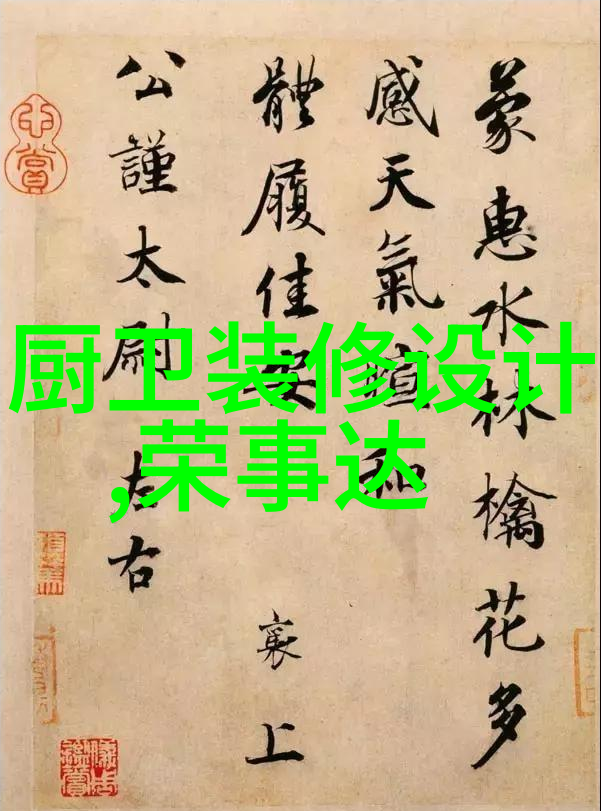 厨卫装修设计
,荣事达
蒙惠水林檎花多
感天氣暄和
體履佳安
襄上
公謹太尉左右
心賞